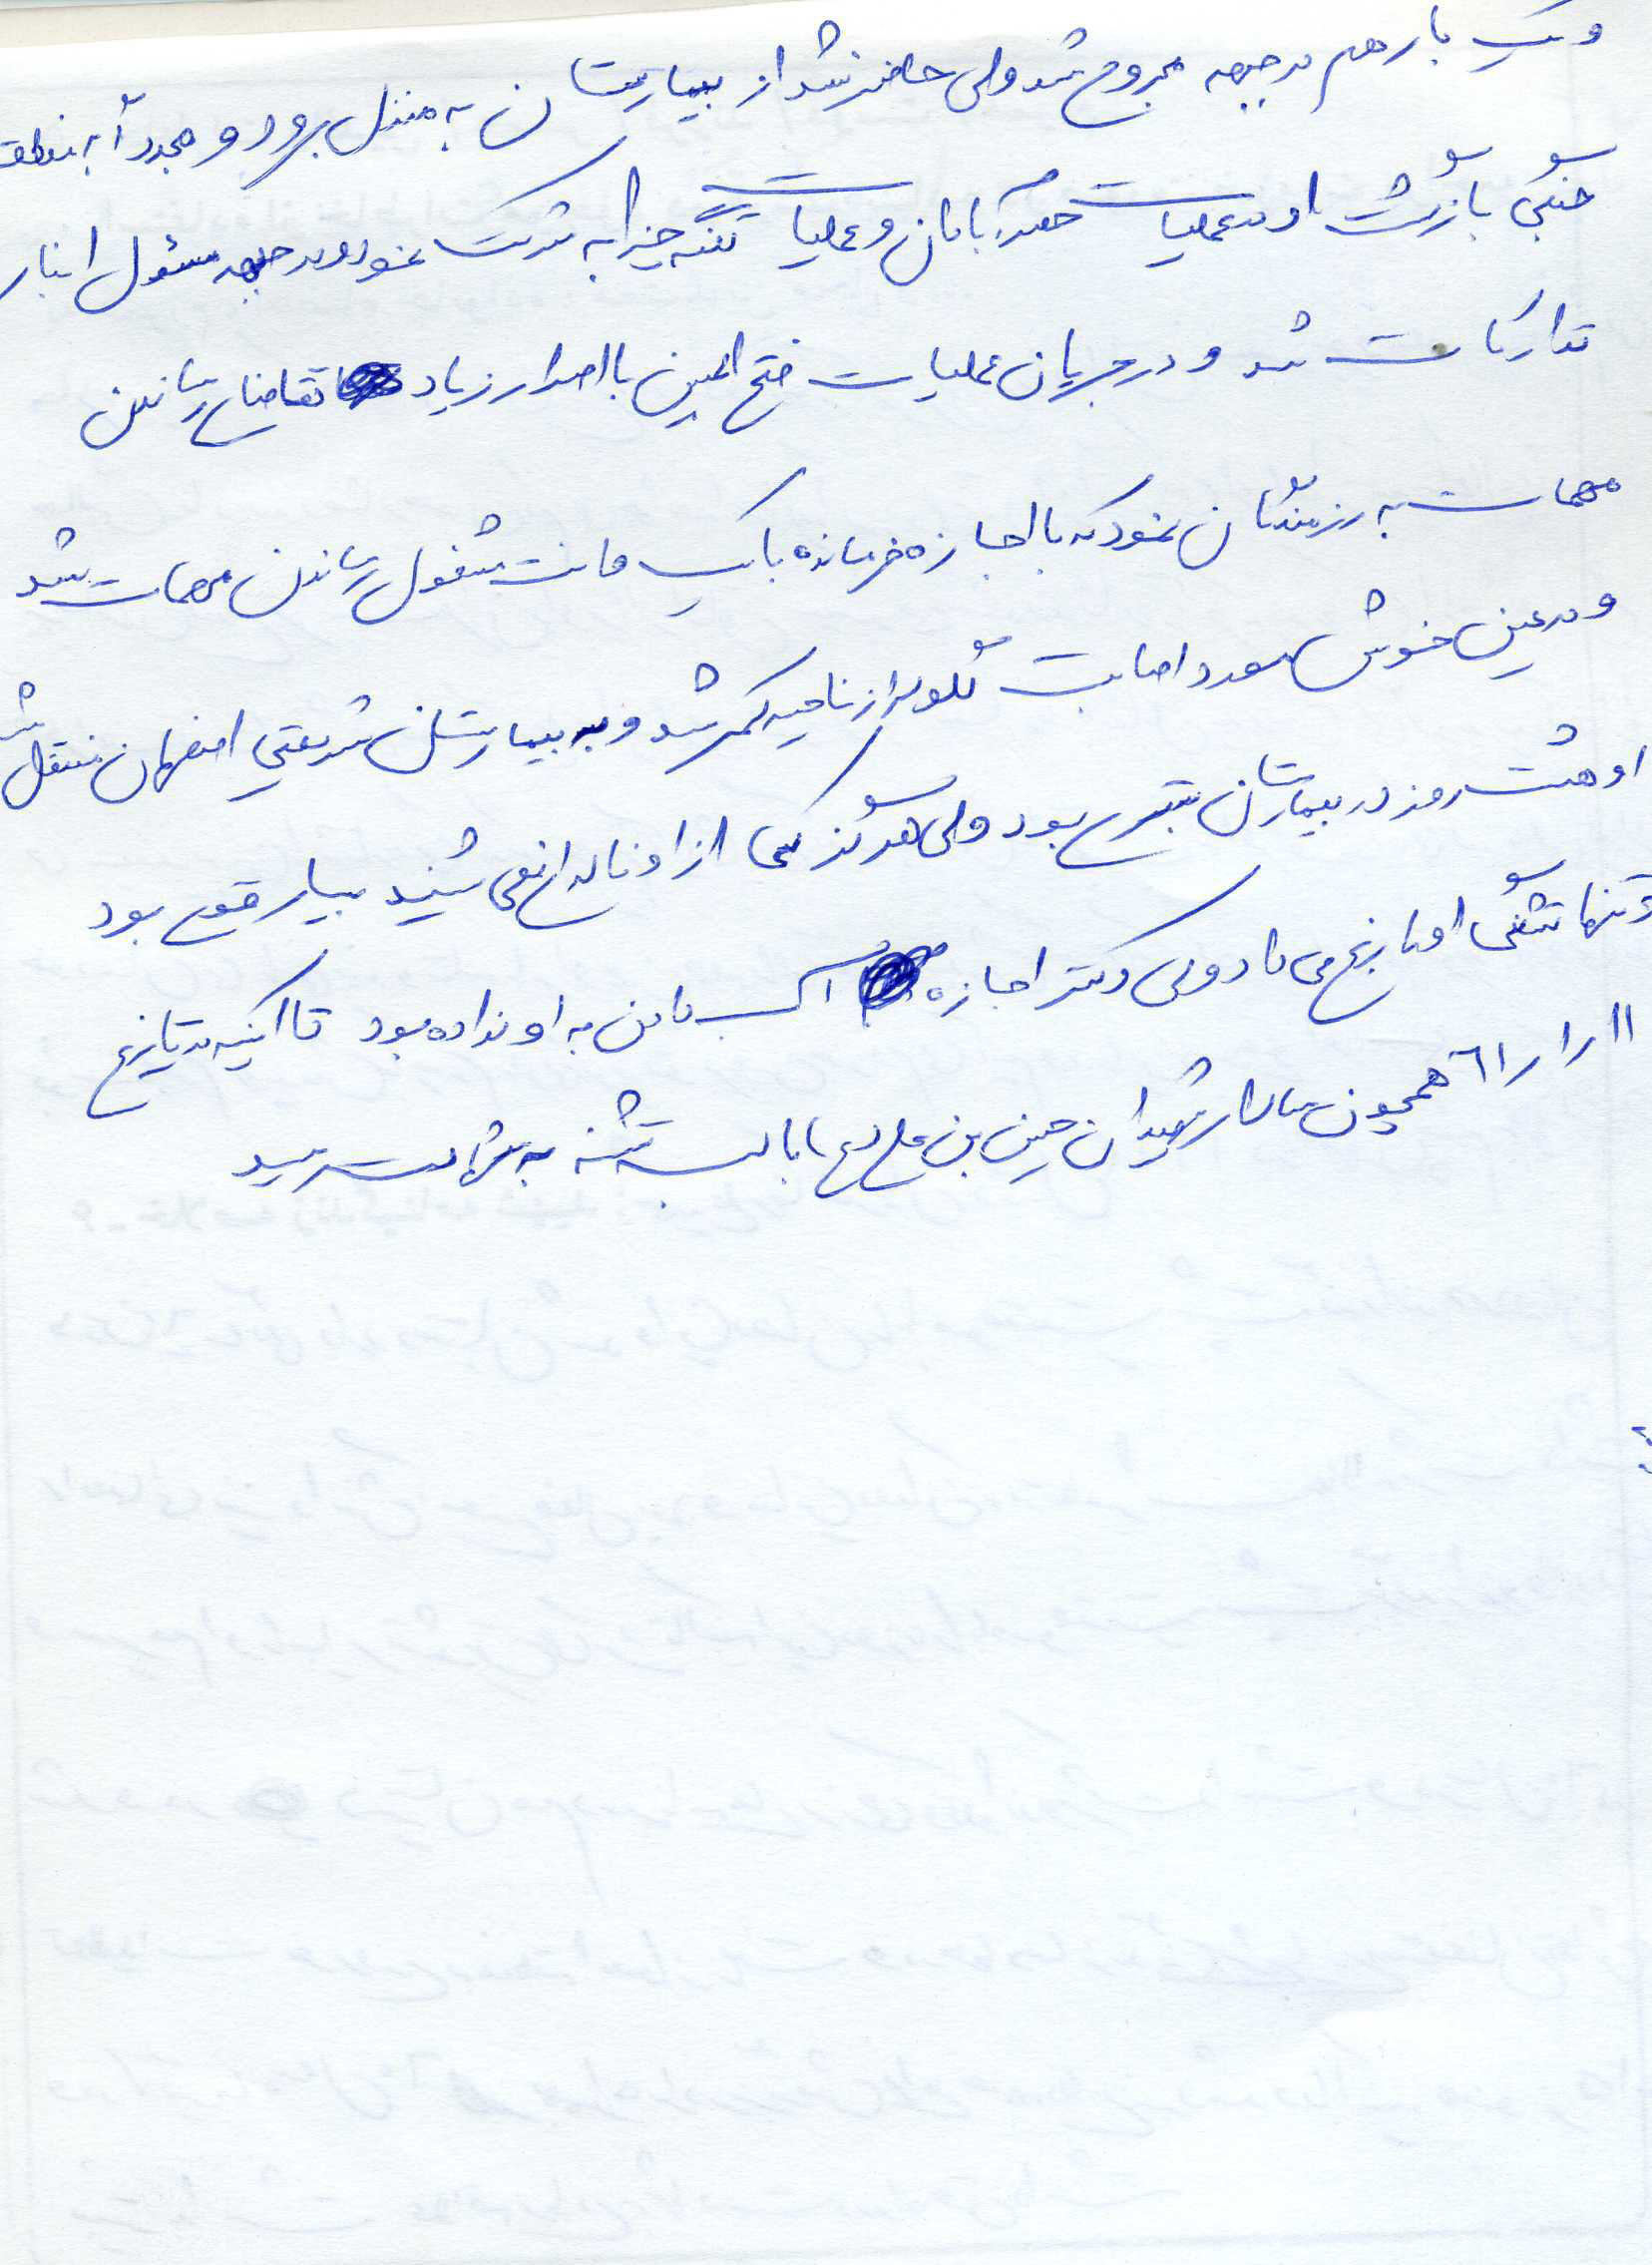 و یک بار هم در جبهه مجروح شد ولی حاضر نشد از بیمارستان به منزل برود و مجدداً به منطقه
جنگی بازگشت او در عملیات و عملیات تنگه چزابه شرکت نمود و در جبهه مسئول انبار
تدارکات شد و در جریان عملیات فتح المبین با اصرار زیاد تقاضای رساندن
مهمات به رزمندگان نمود که با اجازه فرمانده با یک وانت مشغول رساندن مهمات شد
و در عین خوش مورد اصابت گلوله از ناحیه کمر شد و به بیمارستان شریعتی اصفهان منتقل شد
او هشت روز در بیمارستان بستری بود ولی هرگز کسی از او ناله ای نمی شنید بسیار قوی بود
و تنها تشنگی او را رنج می داد ولی دکتر اجازه آب دادن به او نداده بود تا اینکه در تاریخ
۶۱/۱/۱۱ همچون سالار شهیدان حسین بن علی (ع) با لب تشنه به شهادت رسید